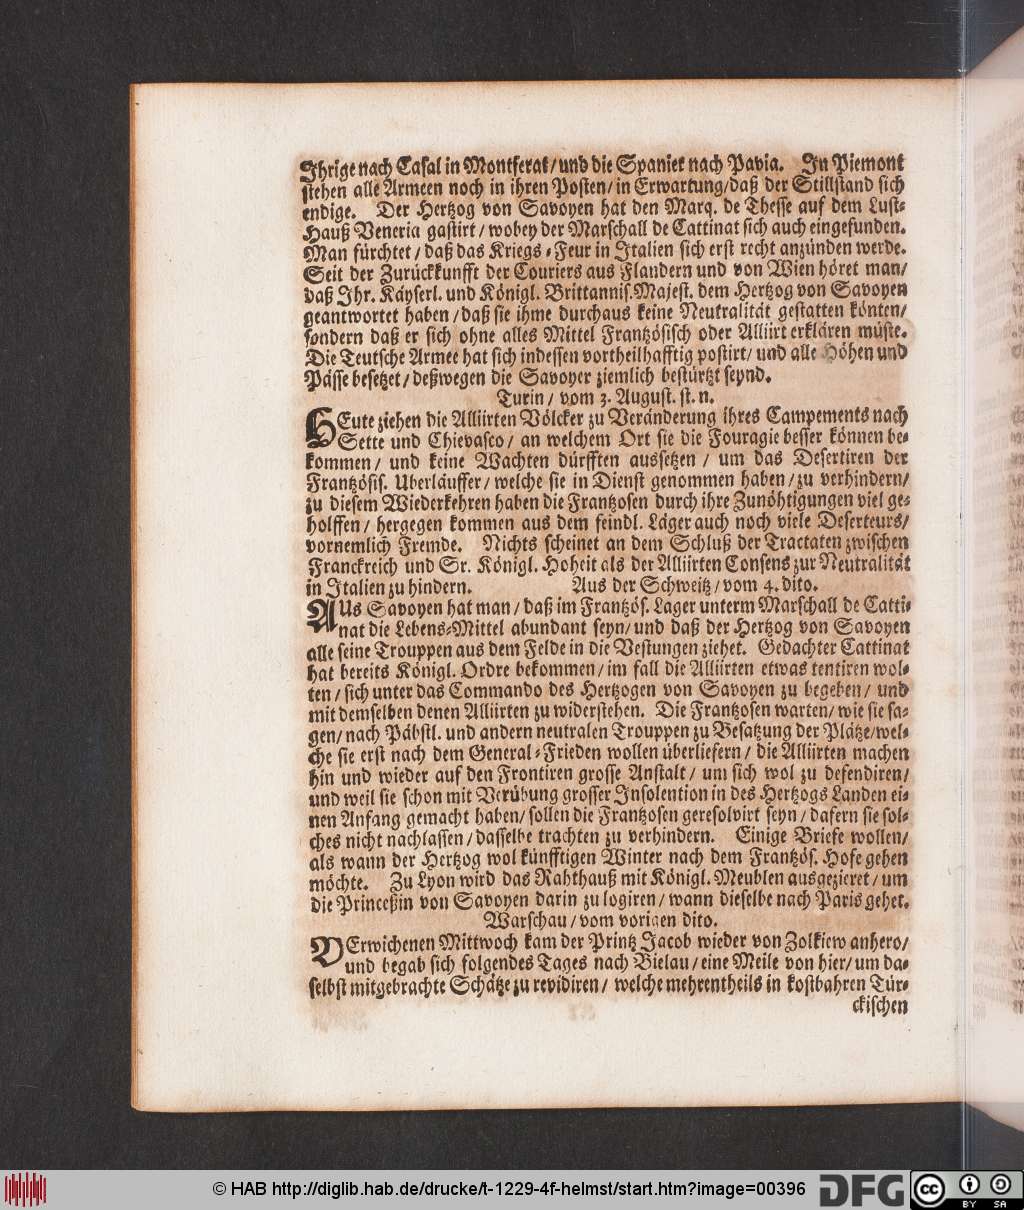 Ihrige nach Casal in Montferat/ und die Spanier nach Pavia. In Piemont
stehen alle Armeen noch in ihren Posten/ in Erwartung/ daß der Stillstand sich
endige. Der Hertzog von Savoyen hat den Marq. de Thesse auf dem Lust-
Hauß Veneria gastirt/ wobey der Marschall de Cattinat sich auch eingefunden.
Man fürchtet/ daß das Kriegs-Feur in Italien sich erst recht anzünden werde.
Seit der Zurückkunfft der Couriers aus Flandern und von Wien höret man/
daß Ihr. Käyserl. und Königl. Brittannis. Majest. dem Hertzog von Savoyen
geantwortet haben/ daß sie ihme durchaus keine Neutralität gestatten könten/
sondern daß er sich ohne alles Mittel Frantzösisch oder Alliirt erklären müste.
Die Teutsche Armee hat sich indessen vortheilhafftig postirt/ und alle Höhen und
Pässe besetzet/ deßwegen die Savoyer ziemlich bestürtzt seynd.
Turin/ vom 3. August. st. n.
HEute ziehen die Alliirten Völcker zu Veränderung ihres Campements nach
Sette und Chievasco/ an welchem Ort sie die Fouragie besser können be-
kommen/ und keine Wachten dürfften aussetzen/ um das Desertiren der
Frantzösis. Uberläuffer/ welche sie in Dienst genommen haben/ zu verhindern/
zu diesem Wiederkehren haben die Frantzosen durch ihre Zunöhtigungen viel ge-
holffen/ hergegen kommen aus dem feindl. Läger auch noch viele Deserteurs/
vornemlich Fremde. Nichts scheinet an dem Schluß der Tractaten zwischen
Franckreich und Sr. Königl. Hoheit als der Alliirten Consens zur Neutralität
in Italien zu hindern. Aus der Schweitz/ vom 4. dito.
AUs Savoyen hat man/ daß im Frantzös. Lager unterm Marschall de Catti-
nat die Lebens-Mittel abundant seyn/ und daß der Hertzog von Savoyen
alle seine Trouppen aus dem Felde in die Vestungen ziehet. Gedachter Cattinat
hat bereits Königl. Ordre bekommen/ im fall die Alliirten etwas tentiren wol-
ten/ sich unter das Commando des Hertzogen von Savoyen zu begeben/ und
mit demselben denen Alliirten zu widerstehen. Die Frantzosen warten/ wie sie sa-
gen/ nach Päbstl. und andern neutralen Trouppen zu Besatzung der Plätze/ wel-
che sie erst nach dem General-Frieden wollen überliefern/ die Alliirten machen
hin und wieder auf den Frontiren grosse Anstalt/ um sich wol zu defendiren/
und weil sie schon mit Verübung grosser Insolention in des Hertzogs Landen ei-
nen Anfang gemacht haben/ sollen die Frantzosen geresolvirt seyn/ dafern sie sol-
ches nicht nachlassen/ dasselbe trachten zu verhindern. Einige Briefe wollen/
als wann der Hertzog wol künfftigen Winter nach dem Frantzös. Hofe gehen
möchte. Zu Lyon wird das Rahthauß mit Königl. Meublen ausgezieret/ um
die Princeßin von Savoyen darin zu logiren/ wann dieselbe nach Paris gehet.
Warschau/ vom vorigen dito.
VErwichenen Mittwoch kam der Printz Jacob wieder von Zolkiew anhero/
und begab sich folgendes Tages nach Bielau/ eine Meile von hier/ um da-
selbst mitgebrachte Schätze zu revidiren/ welche mehrentheils in kostbahren Tür-
ckischen
© HAB http://diglib.hab.de/drucke/t-1229-4f-helmst/start.htm?image=00396
DFG
cc BY SA